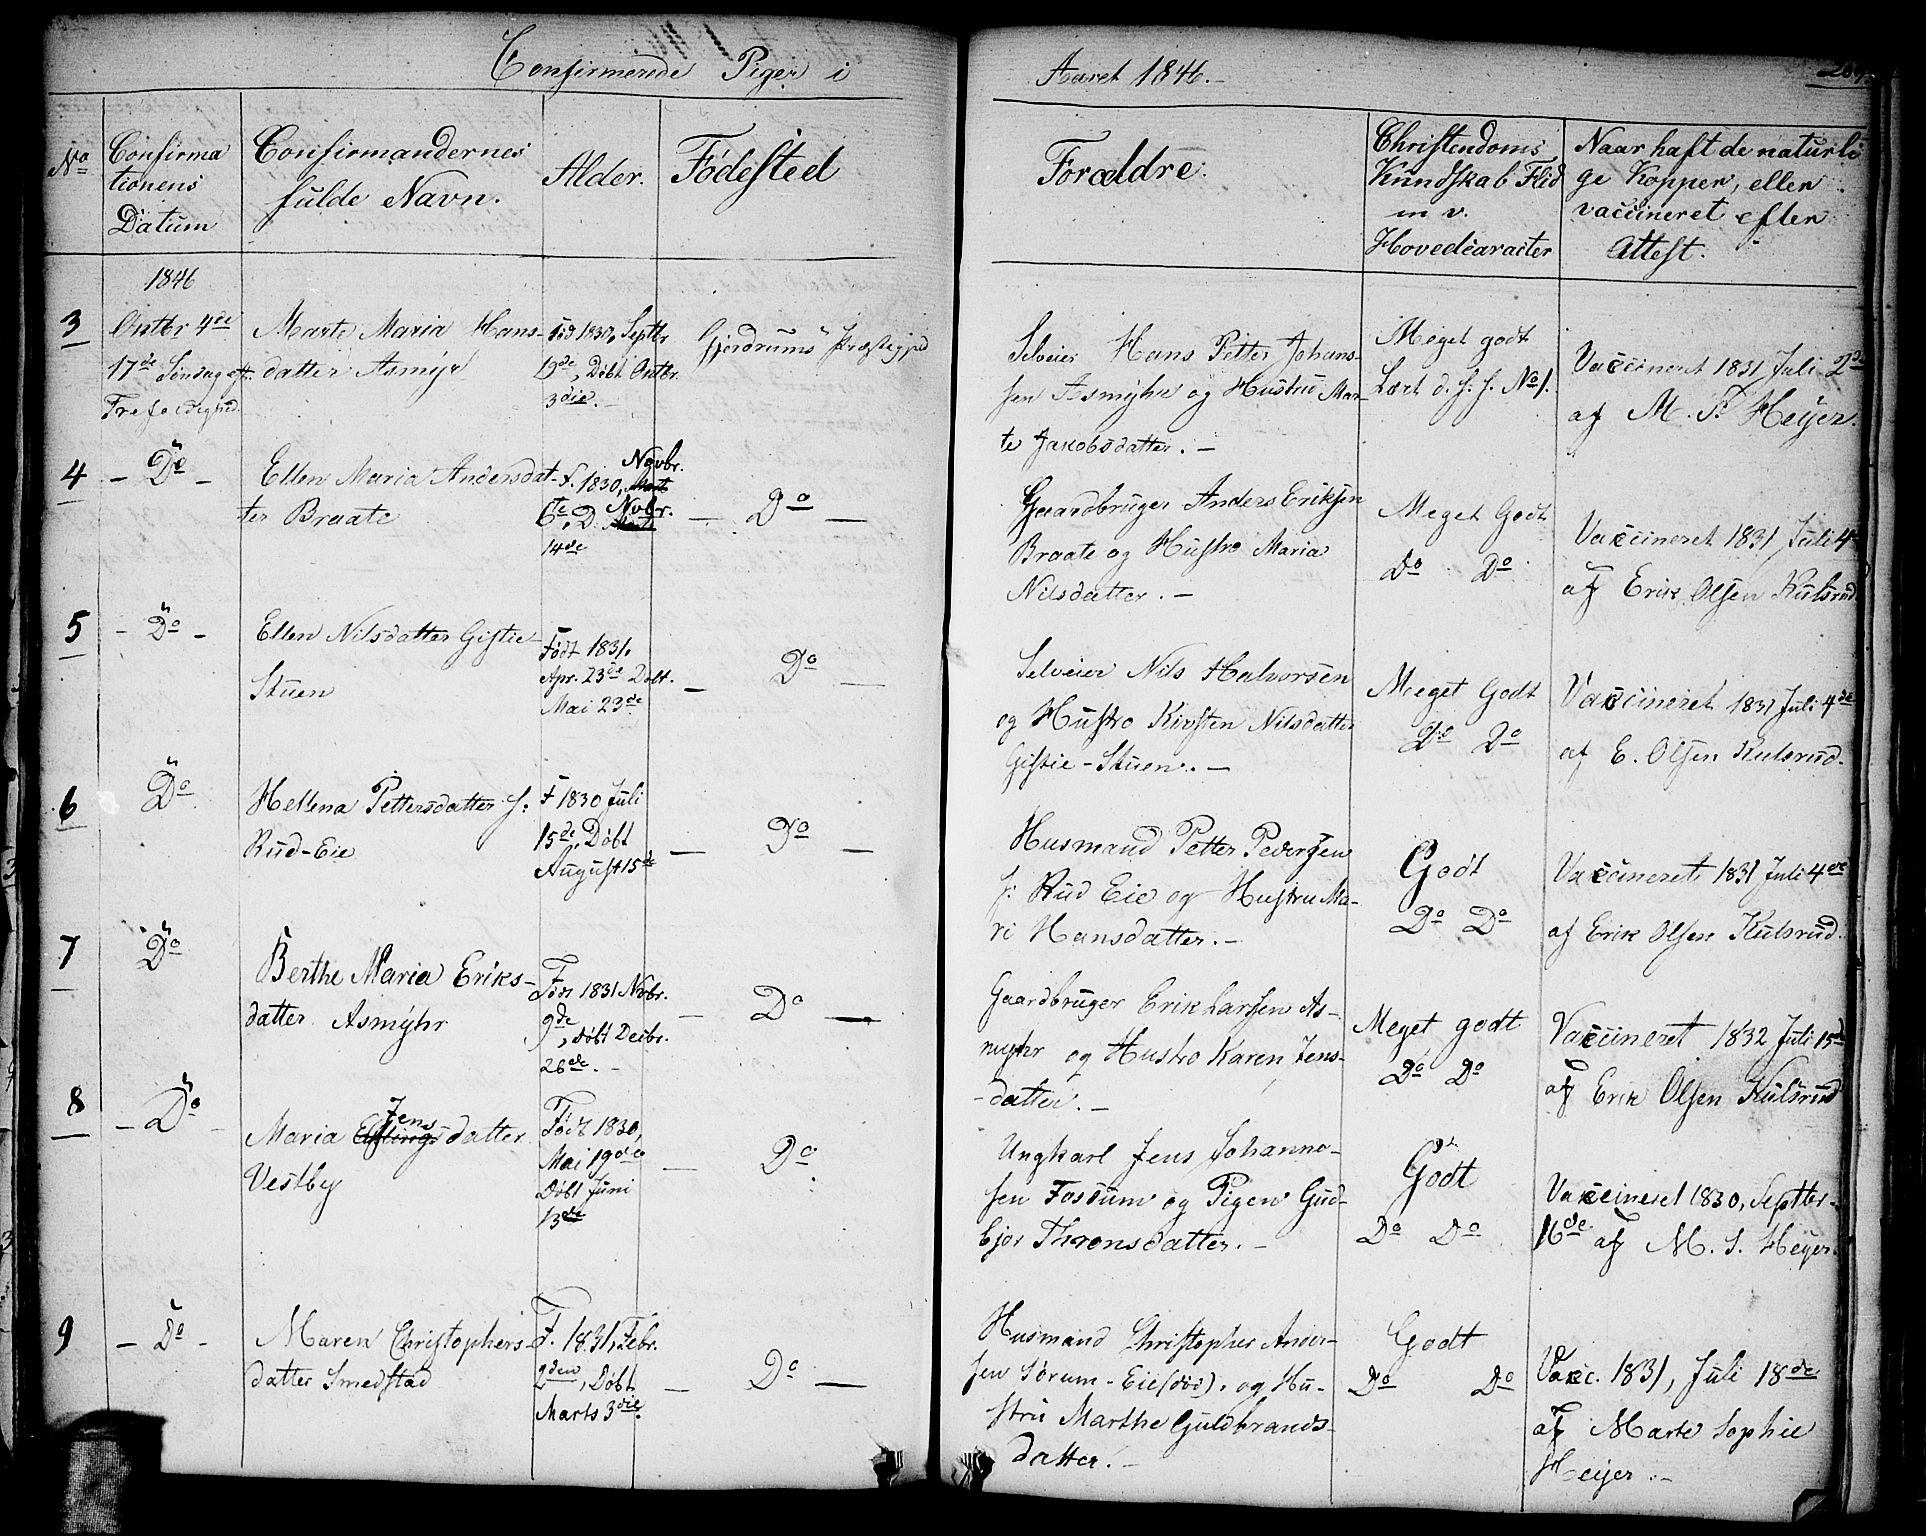 Confirmerede Piger i Aaret 1846.-
No
Confirma
tionens
Datum
Confirmandernes
fulde Navn.
Alder.
Fødested
Forældre.
Christendoms
Kundskab Flid
m v.
Hovedcaracter
Naar haft de naturli
ge Kopper, eller
vaccineret efter
Attest.
1846
3
Octbr 4de
17de Søndag eft.
Trefoldighed.
Marte Maria Hans-
datter Asmyr
Fød 1830, Septbr
19de, Døbt Octbr.
3die.-
Gjerdrums Præstegjed
Selveier Hans Petter Johans-
sen Asmyhr og Hustru Mar-
te Jakobsdatter.-
Meget godt
Lært d. s. s. No 1.
Vaccineret 1831 Juli 2de
af M. S. Heyer.
4
- Do -
Ellen Maria Andersdat-
ter Braate
F. 1830, Novbr.
6te, D. Novbr.
14de
- Do -
Gaardbruger Anders Eriksen
Braate og Hustro Maria
Nilsdatter.-
Meget Godt
Do Do
Vaccineret 1831, Juli 4
af Erik Olsen Kulsrud
5
- Do -
Ellen Nilsdatter Gistie-
Stuen
Født 1831,
Apr. 23de Døbt.
Mai 23de
- Do -
Selveier Nils Halvorsen
og Hustro Kirsten Nilsdatter
Gistie-Stuen.-
Meget Godt
Do Do
Vaccineret 1831 Juli 4de
af E. Olsen Kulsrud.
6
Do
Hellena Pettersdatter f:
Rud-Eie
F 1830 Juli
15de, Døbt
August 15de
- Do -
Husmand Petter Pedersen
f: Rud Eie og Hustru Ma-
ri Hansdatter.-
Godt
Do Do
Vaccineret 1831 Juli 4de
af Erik Olsen Kulsrud.
7
Do
Berthe Maria Eriks-
datter Asmyhr
Fød 1831 Novbr.
9de, døbt Decbr.
26de.-
- Do -
Gaardbruger Erik Larssen As-
myhr og Hustro Karen Jens-
-datter.-
Meget godt
Do Do
Vaccineret 1832 Juli 15de
af Erik Olsen Kulsrud
8
- Do -
Jens
Maria datter
Vestby
Født 1830,
Mai 19de
Døbt Juni
13de
- Do
Ungkarl Jens Johanne-
sen Fossum og Pigen Gud-
bjør Thronsdatter.-
Godt
Do Do
Vaccineret 1830, Septbr-
16de af M. S. Heyer.
9
- Do -
Maren Christophers-
datter Smedstad
F. 1831, Febr.
2den, Døbt
Marts 3die.
- Do -
Husmand Christopher Ander-
sen Sørum-Eie (død). og Hu-
stru Marthe Guldbrands-
datter.-
Godt
Do Do
Vacc. 1831, Juli 18de
af Marte Sophie
Heyer.-